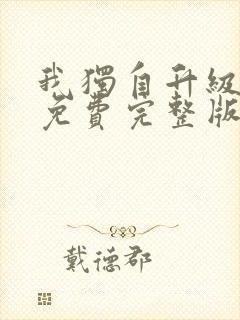 我獨自升級
免費完整版
戴德郡